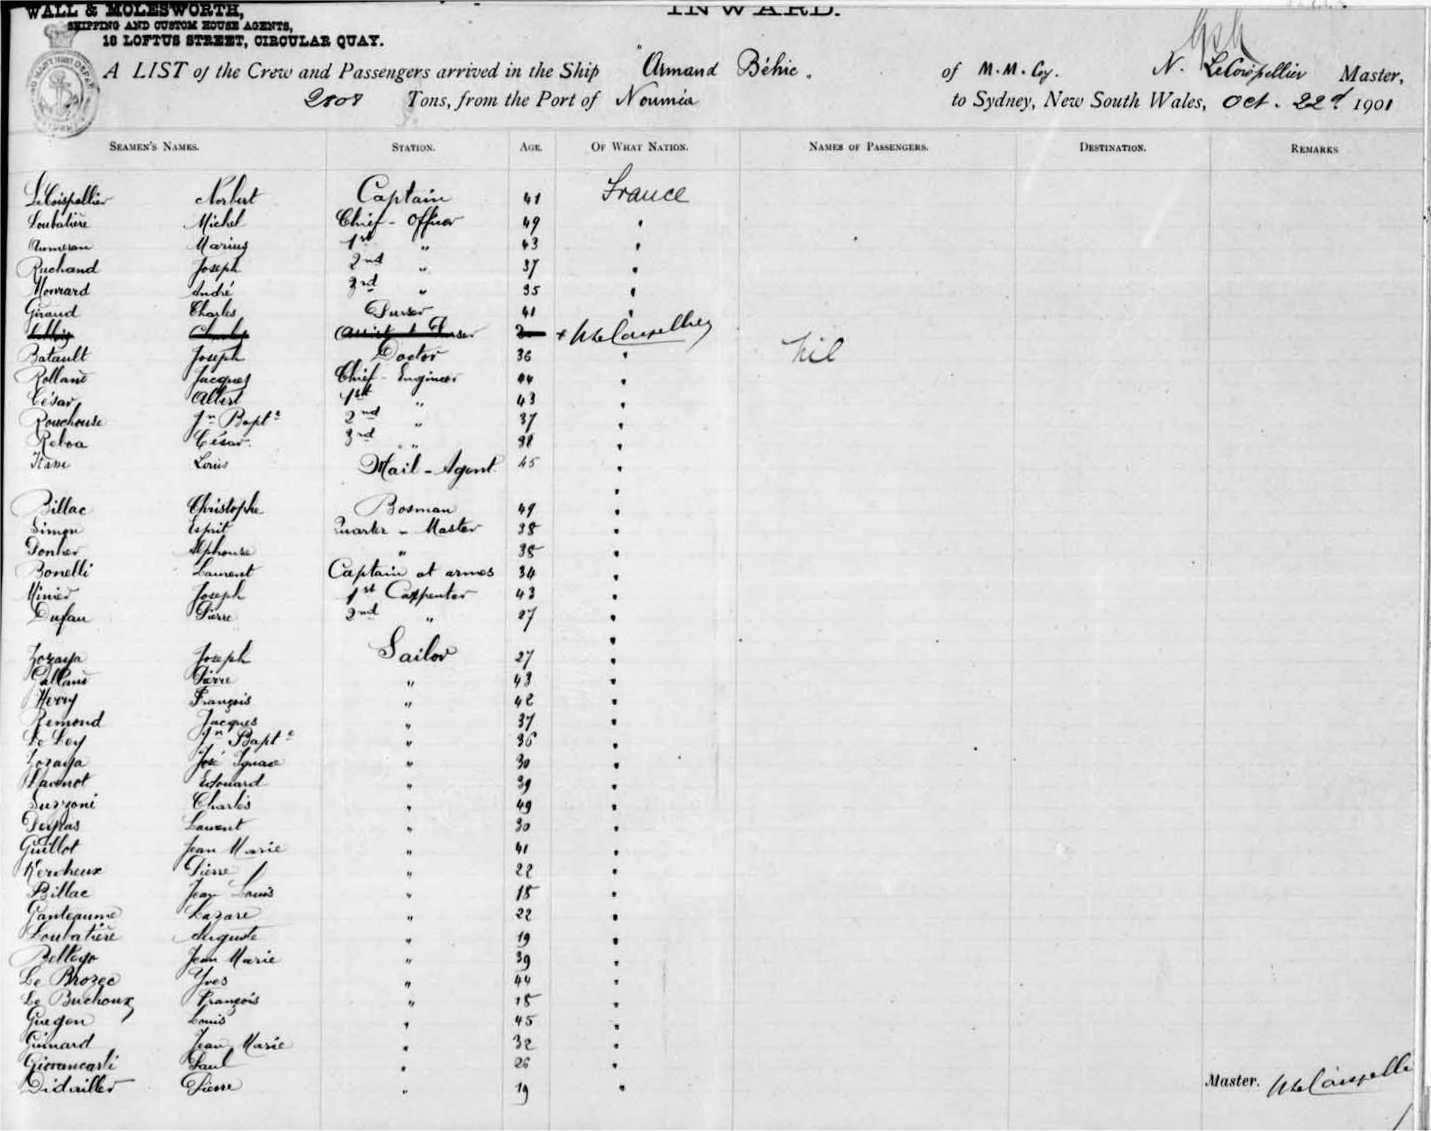 WALL & MOLESWORTH,
SHIPPING AND CUSTOM HOUSE AGENTS,
16 LOFTUS STREET, CIRCULAR QUAY.
INWARD.
A LIST of the Crew and Passengers arrived in the Ship Armand Béhic. of M.M. Coy. N. LeCoispellier Master,
2808 Tons, from the Port of Nouméa to Sydney, New South Wales, Oct. 22d 1901
SEAMEN'S NAMES. STATION. AGE. OF WHAT NATION. NAMES OF PASSENGERS. DESTINATION. REMARKS
LeCoispellier Norbert Captain 41 France
Loubatière Michel Chief - Officer 49 "
Marius 1st " 43 "
Ruchand Joseph 2nd " 37 "
Monrard André 3rd " 35 "
Giraud Charles Purser 41 "
Charles Assist t Purser
Batault Joseph Doctor 36 " Nil
Rolland Jacques Chief - Engineer 44 "
César Albert 1st " 43 "
Rouchouse Jn Bapte 2nd " 37 "
Reboa César 3rd " 38 "
Louis Mail - Agent 45 "
Billac Christophe Bosman 49 "
Simon Esprit Quarter - Master 38 "
Alphonse " 38 "
Bonelli Laurent Captain at armes 34 "
Minier Joseph 1st Carpenter 43 "
Dufau Pierre 2nd " 27 "
Lozaya Joseph Sailor 27 "
Calland Pierre " 43 "
Herry François " 42 "
Remond Jacques " 37 "
Le Ley Jn Bapte " 36 "
Lozaya José Ignace " 30 "
Edouard " 39 "
Suzzoni Charles " 49 "
Duplas Laurent " 30 "
Guillot Jean Marie " 41 "
Kercheux Pierre " 22 "
Billac Jean Louis " 18 "
Ganteaume Lazare " 22 "
Loubatière Auguste " 19 "
Bellego Jean Marie " 39 "
Le Brozec Yves " 44 "
Le Buchoux François " 18 "
Guegon Louis " 45 "
Guinard Jean Marie " 32 "
Giovancarli Paul " 26 "
Didailler Pierre " 19 "
Master. N LeCoispellier